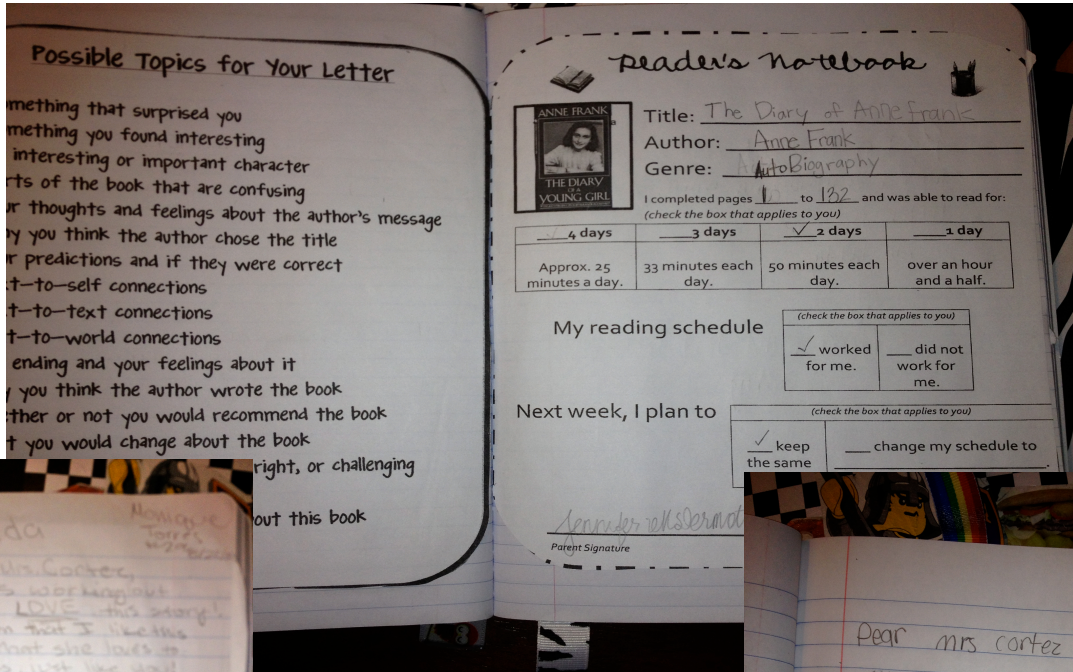 Possible Topics for Your Letter
mething that surprised you
mething you found interesting
interesting or important character
rts of the book that are confusing
ur thoughts and feelings about the author's message
y you think the author chose the title
r predictions and if they were correct
t-to-self connections
t-to-text connections
t-to-world connections
ending and your feelings about it
y you think the author wrote the book
ther or not you would recommend the book
t you would change about the book
right, or challenging
out this book
Reader's Notebook
ANNE FRANK
THE DIARY
OF A
YOUNG GIRL
Title: The Diary of Anne Frank
Author: Anne Frank
Genre: AutoBiography
I completed pages 1 to 132 and was able to read for:
(check the box that applies to you)
✓ 4 days ___3 days ✓ 2 days ___1 day
Approx. 25 minutes a day. 33 minutes each day. 50 minutes each day. over an hour and a half.
My reading schedule
(check the box that applies to you)
✓ worked for me. ___ did not work for me.
Next week, I plan to
(check the box that applies to you)
✓ keep the same ___ change my schedule to ___.
Jennifer
Parent Signature
da
Monique
Torres
Mrs. Cortez,
s working out
LOVE this story!
m that I like this
she loves to
just like you!
Dear mrs cortez